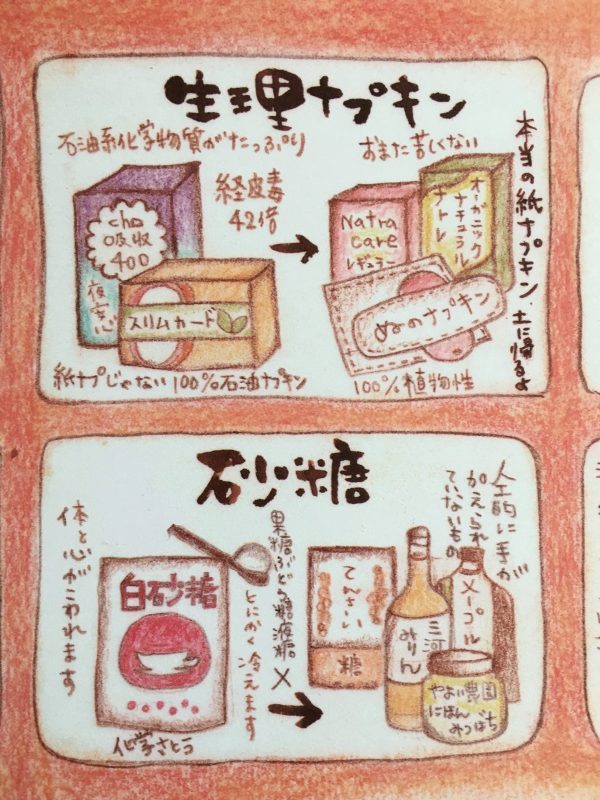 生理ナプキン
石油系化学物質がたっぷり
経皮毒
42倍
cho
吸収
400
夜安心
スリムガード
紙ナプじゃない 100%石油ナプキン
おまた苦しくない
Natra
care
レギュラー
オーガニック
ナチュラル
ナトレ
ぬのナプキン
100%植物性
本当の紙ナプキン・土に帰るよ
砂糖
体と心がこわれます
白砂糖
化学さとう
とにかく冷えます
果糖ぶどう糖液糖 ×
てんさい
糖
三河
みりん
メープル
やよい農園
にほん
みつばち
人的に手が
加えられ
ていないもの